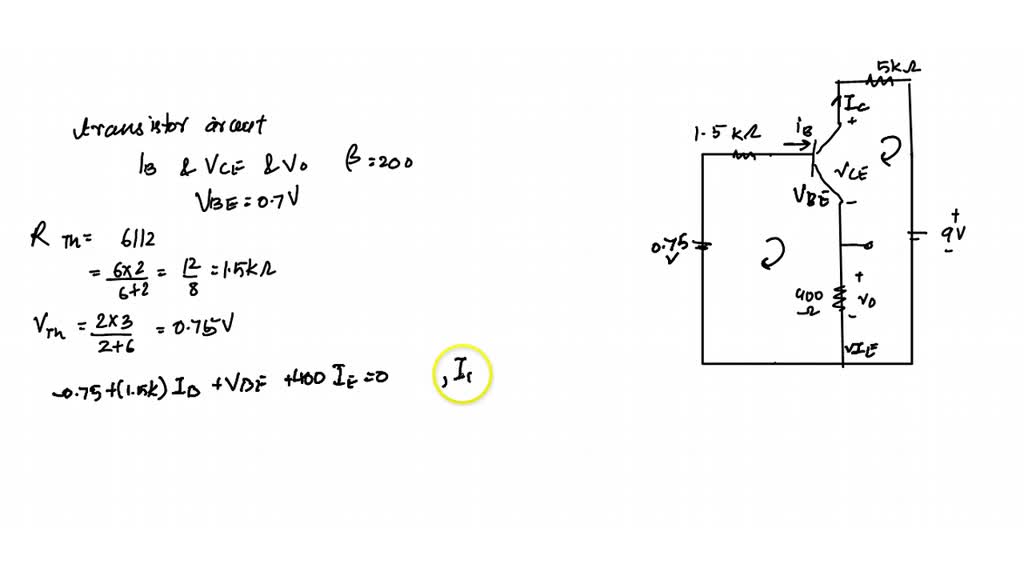 transistor circuit
IB & VCE & Vo β=200
VBE=0.7V
R Th= 6||2
= 6×2/6+2 = 12/8 =1.5kΩ
VTh = 2×3/2+6 = 0.75V
-0.75+(1.5k) IB +VBE +400 IE=0 , I
5kΩ
IC
+
1.5 kΩ
iB
VCE
VBE
-
0.75
V
+
9V
-
+
400
Ω
vo
-
IE